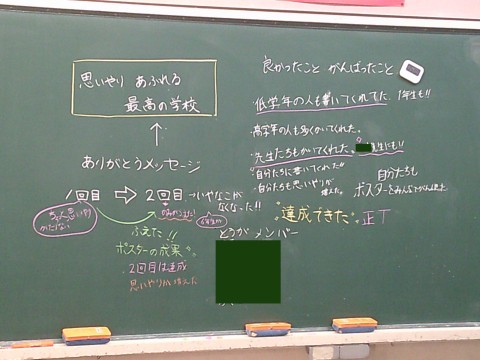 思いやり あふれる
最高の学校
↑
ありがとうメッセージ
1回目 ⇨ 2回目 →いやなことが
なくなった!!
ふえた!!
ポスターの成果
2回目は達成
思いやりが増えた
良かったこと がんばったこと
低学年の人も書いてくれてた 1年生も!!
・高学年の人も多くかいてくれた。
・先生たちもかいてくれた。 先生にも!!
・自分たちに書いてくれた!!
・自分たちも思いやりが
増えた。
自分たちも
ポスターをみんなで
"達成できた" 正丁
とうが メンバー